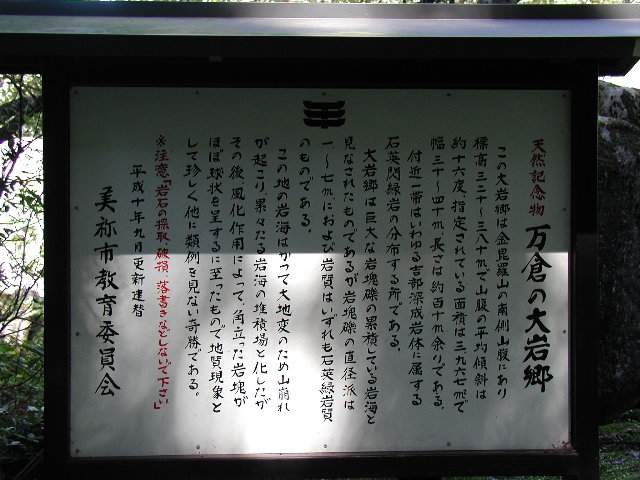 天然記念物 万倉の大岩郷
この大岩郷は金毘羅山の南側山腹にあり
標高三二〇～三八〇mで山腹の平均傾斜は
約十六度 指定されている面積は三、九六七㎡で
幅三十～四十m、長さは約百十m余りである。
付近一帯はいわゆる吉部深成岩体に属する
石英閃緑岩の分布する所である。
大岩郷は巨大な岩塊礫の累積している岩海と
見なされたものであるが岩塊礫の直径派は
一～七mにおよび岩質はいずれも石英緑岩質
のものである。
この地の岩海はかつて大地変のため山崩れ
が起こり、累々たる岩海の堆積場と化したが
その後風化作用によって、角立った岩塊が
ほぼ球状を呈するに至ったもので地質現象と
して珍しく他に類例を見ない奇勝である。
※注意「岩石の採取、破損、落書きなどしないで下さい」
平成十年九月更新建替
美祢市教育委員会